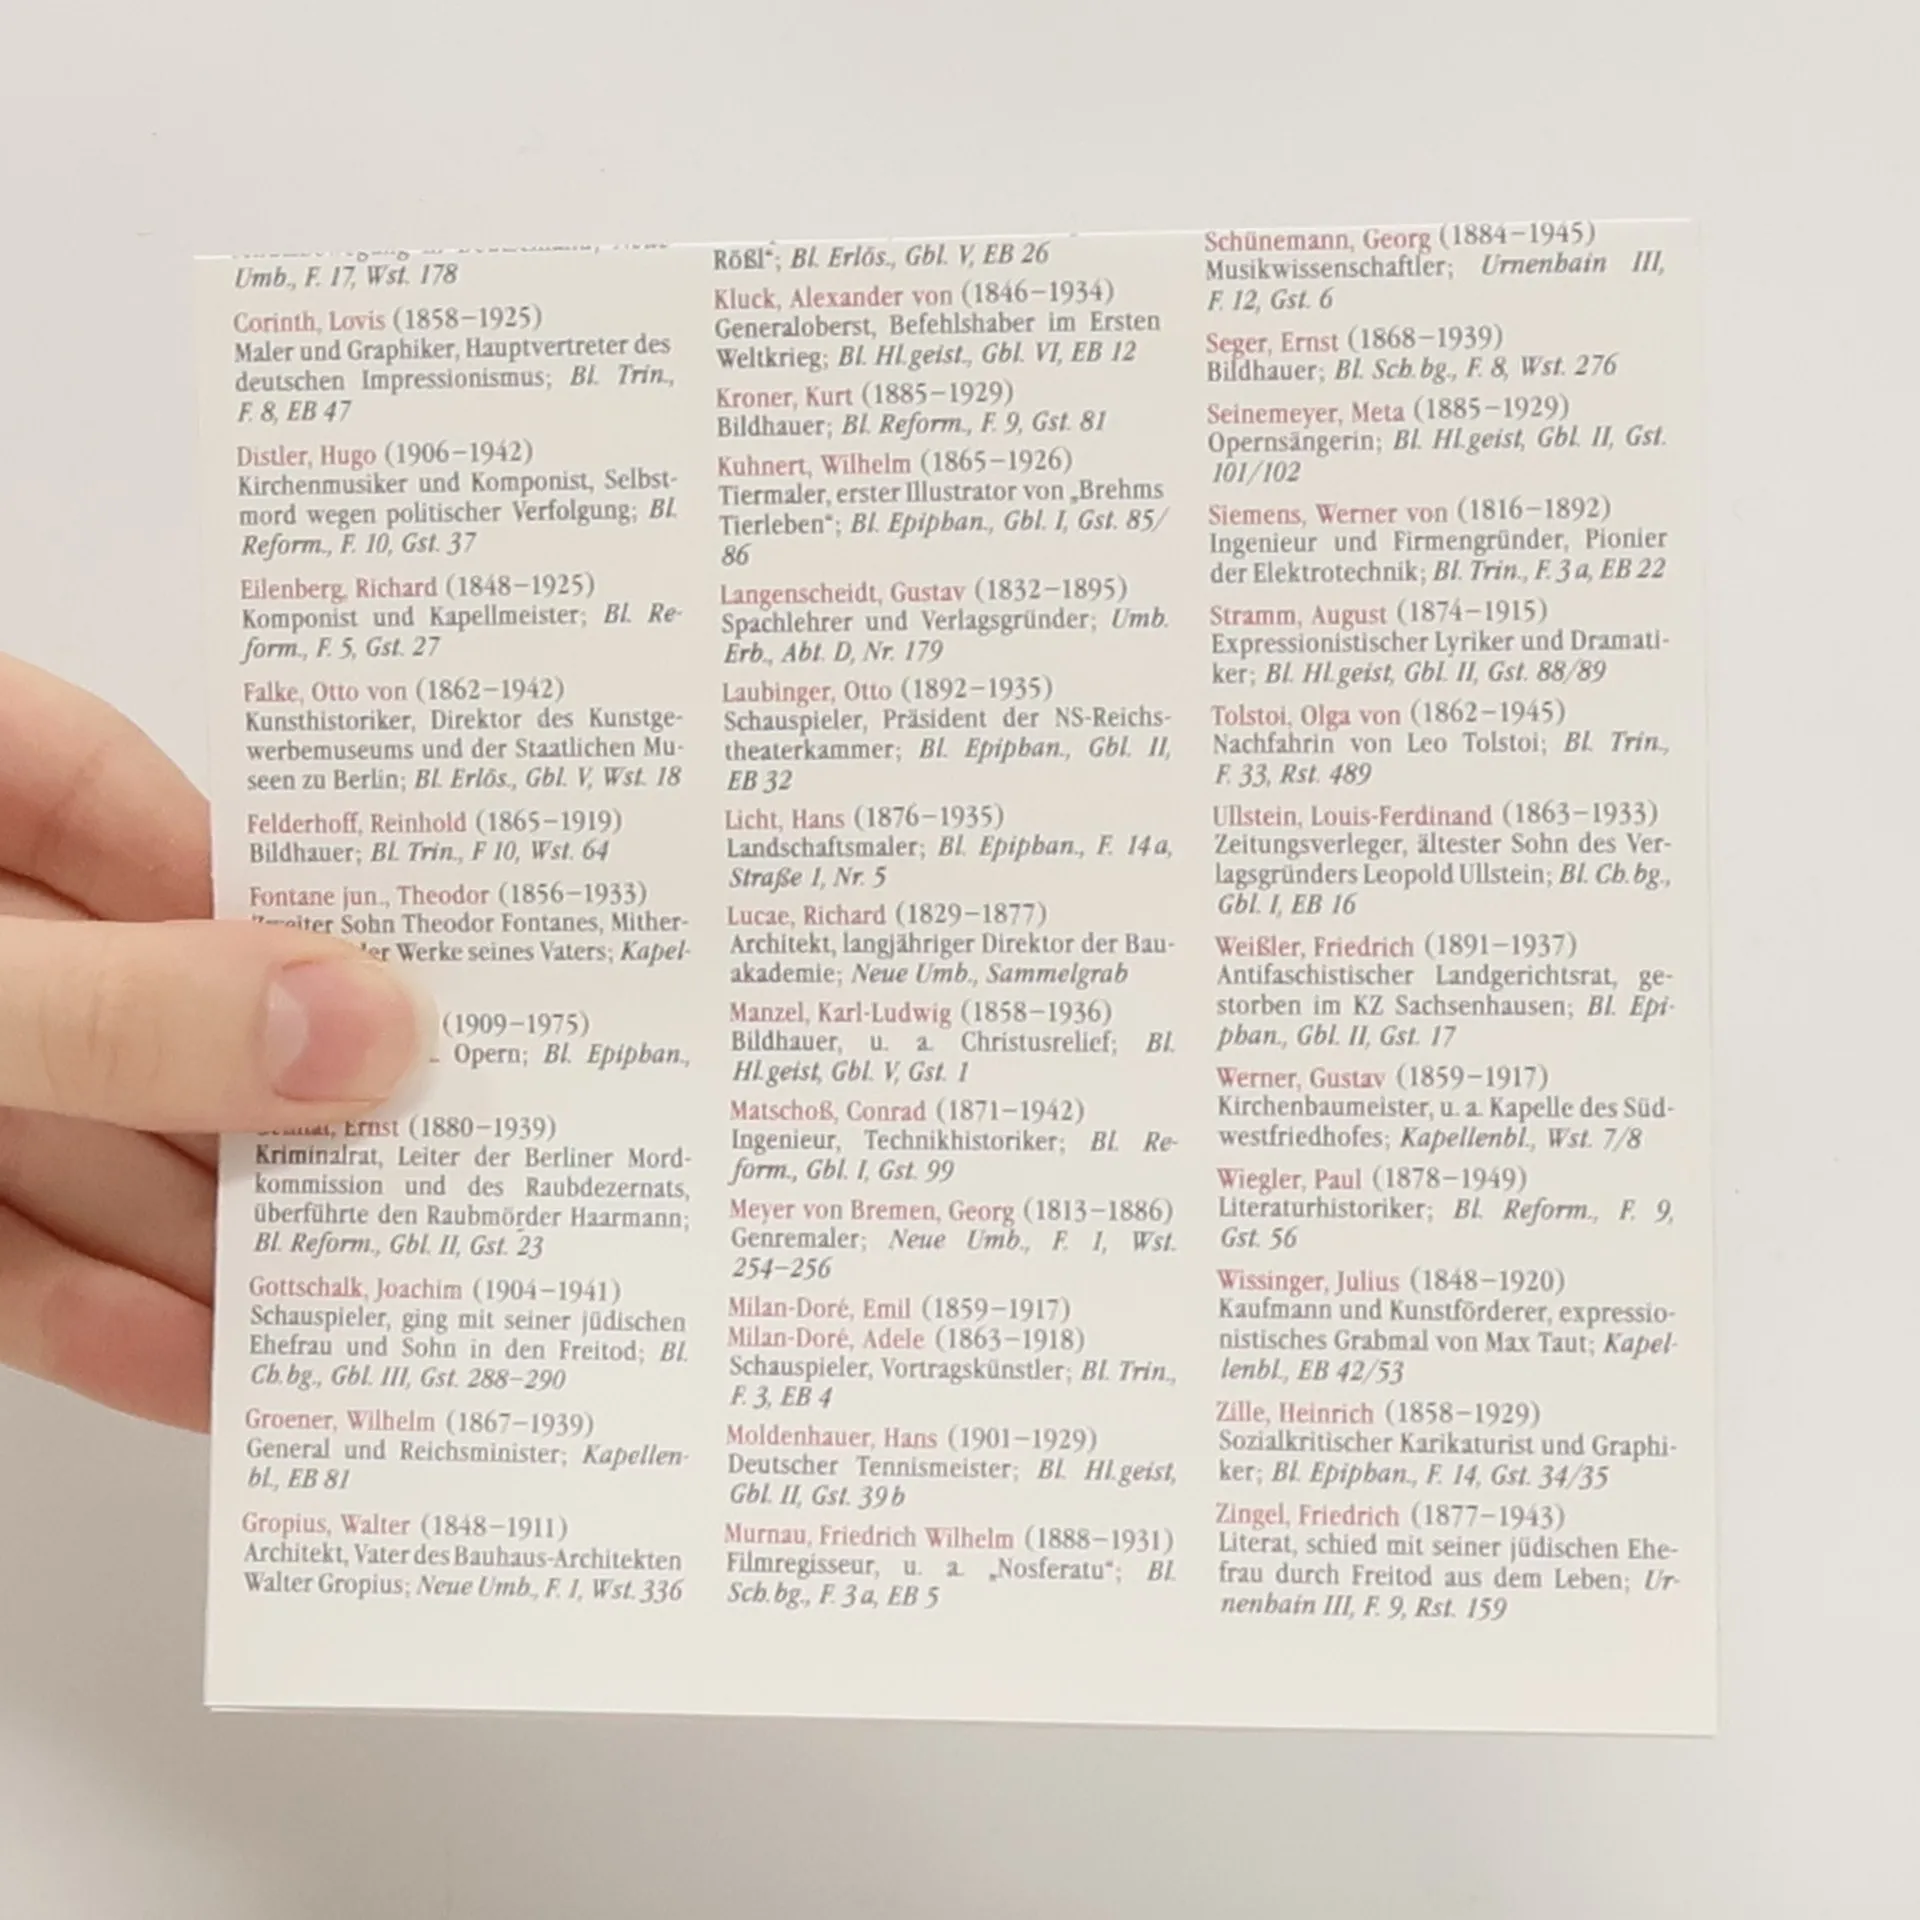 Umb., F. 17, Wst. 178
Corinth, Lovis (1858–1925)
Maler und Graphiker, Hauptvertreter des
deutschen Impressionismus; Bl. Trin.,
F. 8, EB 47
Distler, Hugo (1906–1942)
Kirchenmusiker und Komponist, Selbst-
mord wegen politischer Verfolgung; Bl.
Reform., F. 10, Gst. 37
Eilenberg, Richard (1848–1925)
Komponist und Kapellmeister; Bl. Re-
form., F. 5, Gst. 27
Falke, Otto von (1862–1942)
Kunsthistoriker, Direktor des Kunstge-
werbemuseums und der Staatlichen Mu-
seen zu Berlin; Bl. Erlös., Gbl. V, Wst. 18
Felderhoff, Reinhold (1865–1919)
Bildhauer; Bl. Trin., F 10, Wst. 64
Fontane jun., Theodor (1856–1933)
Sohn Theodor Fontanes, Mither-
Werke seines Vaters; Kapel-
(1909–1975)
Opern; Bl. Epiphan.,
Ernst (1880–1939)
Kriminalrat, Leiter der Berliner Mord-
kommission und des Raubdezernats,
überführte den Raubmörder Haarmann;
Bl. Reform., Gbl. II, Gst. 23
Gottschalk, Joachim (1904–1941)
Schauspieler, ging mit seiner jüdischen
Ehefrau und Sohn in den Freitod; Bl.
Ch.bg., Gbl. III, Gst. 288–290
Groener, Wilhelm (1867–1939)
General und Reichsminister; Kapellen-
bl., EB 81
Gropius, Walter (1848–1911)
Architekt, Vater des Bauhaus-Architekten
Walter Gropius; Neue Umb., F. 1, Wst. 336
Rößl“; Bl. Erlös., Gbl. V, EB 26
Kluck, Alexander von (1846–1934)
Generaloberst, Befehlshaber im Ersten
Weltkrieg; Bl. Hl.geist., Gbl. VI, EB 12
Kroner, Kurt (1885–1929)
Bildhauer; Bl. Reform., F. 9, Gst. 81
Kuhnert, Wilhelm (1865–1926)
Tiermaler, erster Illustrator von „Brehms
Tierleben“; Bl. Epiphan., Gbl. I, Gst. 85/
86
Langenscheidt, Gustav (1832–1895)
Spachlehrer und Verlagsgründer; Umb.
Erb., Abt. D, Nr. 179
Laubinger, Otto (1892–1935)
Schauspieler, Präsident der NS-Reichs-
theaterkammer; Bl. Epiphan., Gbl. II,
EB 32
Licht, Hans (1876–1935)
Landschaftsmaler; Bl. Epiphan., F. 14a,
Straße 1, Nr. 5
Lucae, Richard (1829–1877)
Architekt, langjähriger Direktor der Bau-
akademie; Neue Umb., Sammelgrab
Manzel, Karl-Ludwig (1858–1936)
Bildhauer, u. a. Christusrelief; Bl.
Hl.geist, Gbl. V, Gst. 1
Matschoß, Conrad (1871–1942)
Ingenieur, Technikhistoriker; Bl. Re-
form., Gbl. I, Gst. 99
Meyer von Bremen, Georg (1813–1886)
Genremaler; Neue Umb., F. 1, Wst.
254–256
Milan-Doré, Emil (1859–1917)
Milan-Doré, Adele (1863–1918)
Schauspieler, Vortragskünstler; Bl. Trin.,
F. 3, EB 4
Moldenhauer, Hans (1901–1929)
Deutscher Tennismeister; Bl. Hl.geist,
Gbl. II, Gst. 39b
Murnau, Friedrich Wilhelm (1888–1931)
Filmregisseur, u. a. „Nosferatu“; Bl.
Sch.bg., F. 3a, EB 5
Schünemann, Georg (1884–1945)
Musikwissenschaftler; Urnenhain III,
F. 12, Gst. 6
Seger, Ernst (1868–1939)
Bildhauer; Bl. Sch.bg., F. 8, Wst. 276
Seinemeyer, Meta (1885–1929)
Opernsängerin; Bl. Hl.geist, Gbl. II, Gst.
101/102
Siemens, Werner von (1816–1892)
Ingenieur und Firmengründer, Pionier
der Elektrotechnik; Bl. Trin., F. 3a, EB 22
Stramm, August (1874–1915)
Expressionistischer Lyriker und Dramati-
ker; Bl. Hl.geist, Gbl. II, Gst. 88/89
Tolstoi, Olga von (1862–1945)
Nachfahrin von Leo Tolstoi; Bl. Trin.,
F. 33, Rst. 489
Ullstein, Louis-Ferdinand (1863–1933)
Zeitungsverleger, ältester Sohn des Ver-
lagsgründers Leopold Ullstein; Bl. Ch.bg.,
Gbl. I, EB 16
Weißler, Friedrich (1891–1937)
Antifaschistischer Landgerichtsrat, ge-
storben im KZ Sachsenhausen; Bl. Epi-
phan., Gbl. II, Gst. 17
Werner, Gustav (1859–1917)
Kirchenbaumeister, u. a. Kapelle des Süd-
westfriedhofes; Kapellenbl., Wst. 7/8
Wiegler, Paul (1878–1949)
Literaturhistoriker; Bl. Reform., F. 9,
Gst. 56
Wissinger, Julius (1848–1920)
Kaufmann und Kunstförderer, expressio-
nistisches Grabmal von Max Taut; Kapel-
lenbl., EB 42/53
Zille, Heinrich (1858–1929)
Sozialkritischer Karikaturist und Graphi-
ker; Bl. Epiphan., F. 14, Gst. 34/35
Zingel, Friedrich (1877–1943)
Literat, schied mit seiner jüdischen Ehe-
frau durch Freitod aus dem Leben; Ur-
nenhain III, F. 9, Rst. 159